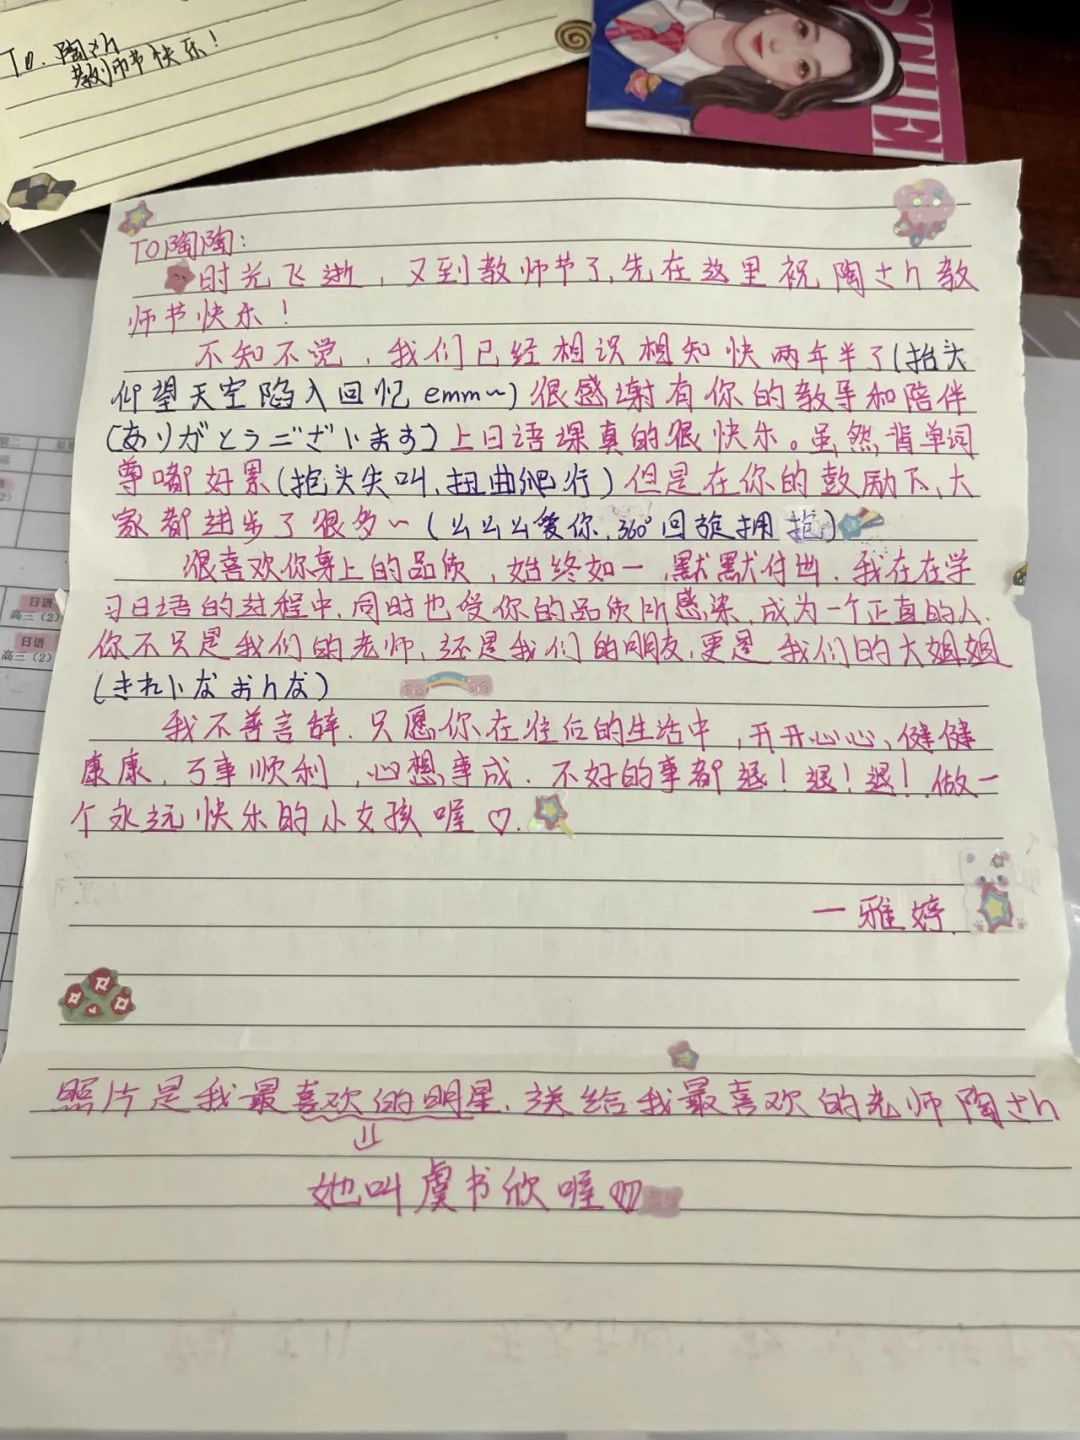 To. 陶さん
教师节快乐!
STHE
TO陶陶:
时光飞逝,又到教师节了,先在这里祝陶さん教
师节快乐!
不知不觉,我们已经相识相知快两年半了(抬头
仰望天空陷入回忆emm~)很感谢有你的教导和陪伴
(ありがとうございます)上日语课真的很快乐。虽然背单词
尊嘟好累(抱头失叫,扭曲爬行)但是在你的鼓励下,大
家都进步了很多~(么么么爱你,360°回旋拥抱)
很喜欢你身上的品质,始终如一,默默付出.我在在学
习日语的过程中,同时也受你的品质所感染,成为一个正真的人.
你不只是我们的老师,还是我们的朋友,更是我们的大姐姐
(きれいなおんな)
我不善言辞.只愿你在往后的生活中,开开心心、健健
康康,万事顺利,心想事成.不好的事都退!退!退!做一
个永远快乐的小女孩喔♡.
一雅婷.
照片是我最喜欢的明星,送给我最喜欢的老师陶さん
她叫虞书欣喔♡
日语
高三(2)
日语
高三(2)